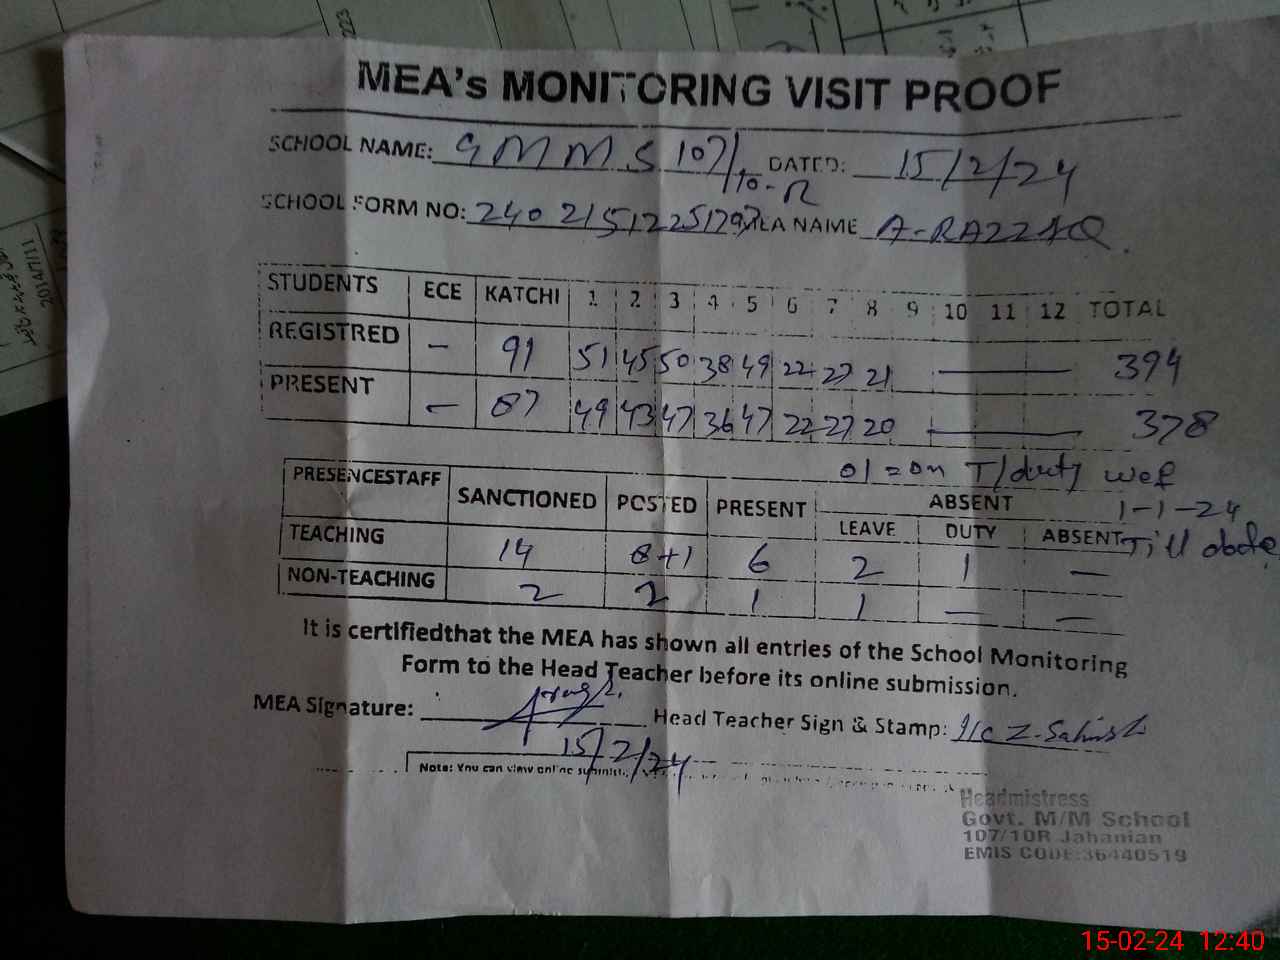 MEA's MONITORING VISIT PROOF
SCHOOL NAME: GMMS 107/10-R DATED: 15/2/24
SCHOOL FORM NO: MEA NAME A-RAZZAQ
STUDENTS ECE KATCHI 1 2 3 4 5 6 7 8 9 10 11 12 TOTAL
REGISTRED - 91 51 45 50 38 49 22 27 21 — 394
PRESENT - 87 49 43 47 36 47 22 27 20 — 378
01 = on T/duty wef
1-1-24
Till date
PRESENCESTAFF SANCTIONED POSTED PRESENT ABSENT
LEAVE DUTY ABSENT
TEACHING 14 8+1 6 2 1 —
NON-TEACHING 2 2 1 1 — —
It is certifiedthat the MEA has shown all entries of the School Monitoring
Form to the Head Teacher before its online submission.
MEA Signature: Head Teacher Sign & Stamp: I/c
15/2/24
Note: You can view online
Headmistress
Govt. M/M School
107/10R Jahanian
EMIS CODE:36440519
15-02-24 12:40